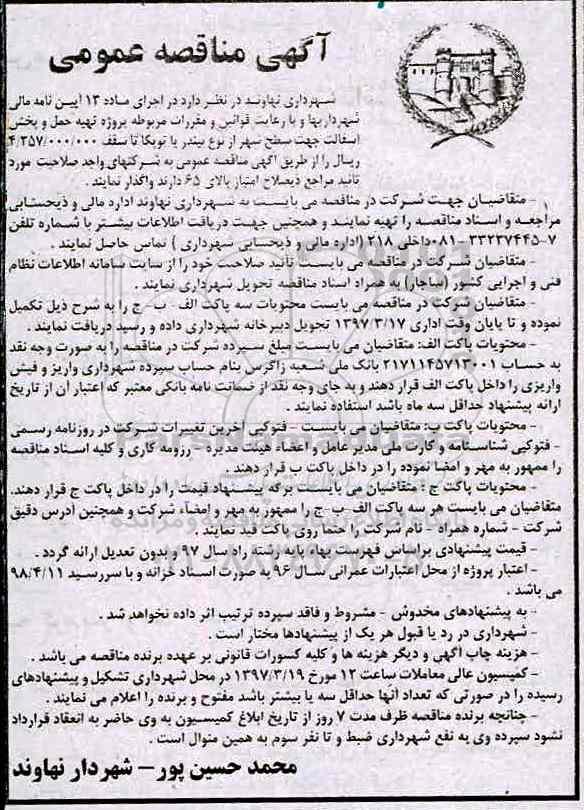 آگهی مناقصه عمومی
شهرداری نهاوند در نظر دارد در اجرای ماده ۱۳ آیین نامه مالی
شهرداریها و با رعایت قوانین و مقررات مربوطه پروژه تهیه حمل و پخش
آسفالت جهت سطح شهر از نوع بیندر یا توپکا تا سقف ۴/۳۵۷/۰۰۰/۰۰۰
ریال را از طریق آگهی مناقصه عمومی به شرکتهای واجد صلاحیت مورد
تائید مراجع ذیصلاح امتیاز بالای ۶۵ دارند واگذار نمایند .
- متقاضیان جهت شرکت در مناقصه می بایست به شهرداری نهاوند اداره مالی و ذیحسابی
مراجعه و اسناد مناقصه را تهیه نمایند و همچنین جهت دریافت اطلاعات بیشتر با شماره تلفن
۷-۳۳۲۳۷۴۴۵ -۰۸۱داخلی ۲۱۸ (اداره مالی و ذیحسابی شهرداری ) تماس حاصل نمایند .
- متقاضیان شرکت در مناقصه می بایست تائید صلاحیت خود را از سایت سامانه اطلاعات نظام
فنی و اجرایی کشور (ساجار) به همراه اسناد مناقصه تحویل شهرداری نمایند .
- متقاضیان شرکت در مناقصه می بایست محتویات سه پاکت الف - ب - ج را به شرح ذیل تکمیل
نموده و تا پایان وقت اداری ۱۳۹۷/۳/۱۷ تحویل دبیرخانه شهرداری داده و رسید دریافت نمایند .
- محتویات پاکت الف: متقاضیان می بایست مبلغ سپرده شرکت در مناقصه را به صورت وجه نقد
به حساب ۲۱۷۱۱۴۵۷۱۳۰۰۱ بانک ملی شعبه زاگرس بنام حساب سپرده شهرداری واریز و فیش
واریزی را داخل پاکت الف قرار دهند و به جای وجه نقد از ضمانت نامه بانکی معتبر که اعتبار آن از تاریخ
ارائه پیشنهاد حداقل سه ماه باشد استفاده نمایند .
- محتویات پاکت ب: متقاضیان می بایست - فتوکپی آخرین تغییرات شرکت در روزنامه رسمی
- فتوکپی شناسنامه و کارت ملی مدیر عامل و اعضاء هیئت مدیره - رزومه کاری و کلیه اسناد مناقصه
را ممهور به مهر و امضا نموده را در داخل پاکت ب قرار دهند .
- محتویات پاکت ج : متقاضیان می بایست برگه پیشنهاد قیمت را در داخل پاکت ج قرار دهند.
متقاضیان می بایست هر سه پاکت الف-ب-ج را ممهور به مهر و امضاء شرکت و همچنین آدرس دقیق
شرکت - شماره همراه - نام شرکت را حتما روی پاکت قید نمایند .
- قیمت پیشنهادی براساس فهرست بهاء پایه رشته راه سال ۹۷ و بدون تعدیل ارائه گردد .
- اعتبار پروژه از محل اعتبارات عمرانی سال ۹۶ به صورت اسناد خزانه و با سررسید ۹۸/۴/۱۱
می باشد .
- به پیشنهادهای مخدوش - مشروط و فاقد سپرده ترتیب اثر داده نخواهد شد .
- شهرداری در رد یا قبول هر یک از پیشنهادها مختار است .
- هزینه چاپ آگهی و دیگر هزینه ها و کلیه کسورات قانونی بر عهده برنده مناقصه می باشد .
- کمیسیون عالی معاملات ساعت ۱۲ مورخ ۱۳۹۷/۳/۱۹ در محل شهرداری تشکیل و پیشنهادهای
رسیده را در صورتی که تعداد آنها حداقل سه یا بیشتر باشد مفتوح و برنده را اعلام می نمایند .
- چنانچه برنده مناقصه ظرف مدت ۷ روز از تاریخ ابلاغ کمیسیون به وی حاضر به انعقاد قرارداد
نشود سپرده وی به نفع شهرداری ضبط و تا نفر سوم به همین منوال است .
محمد حسین پور - شهردار نهاوند